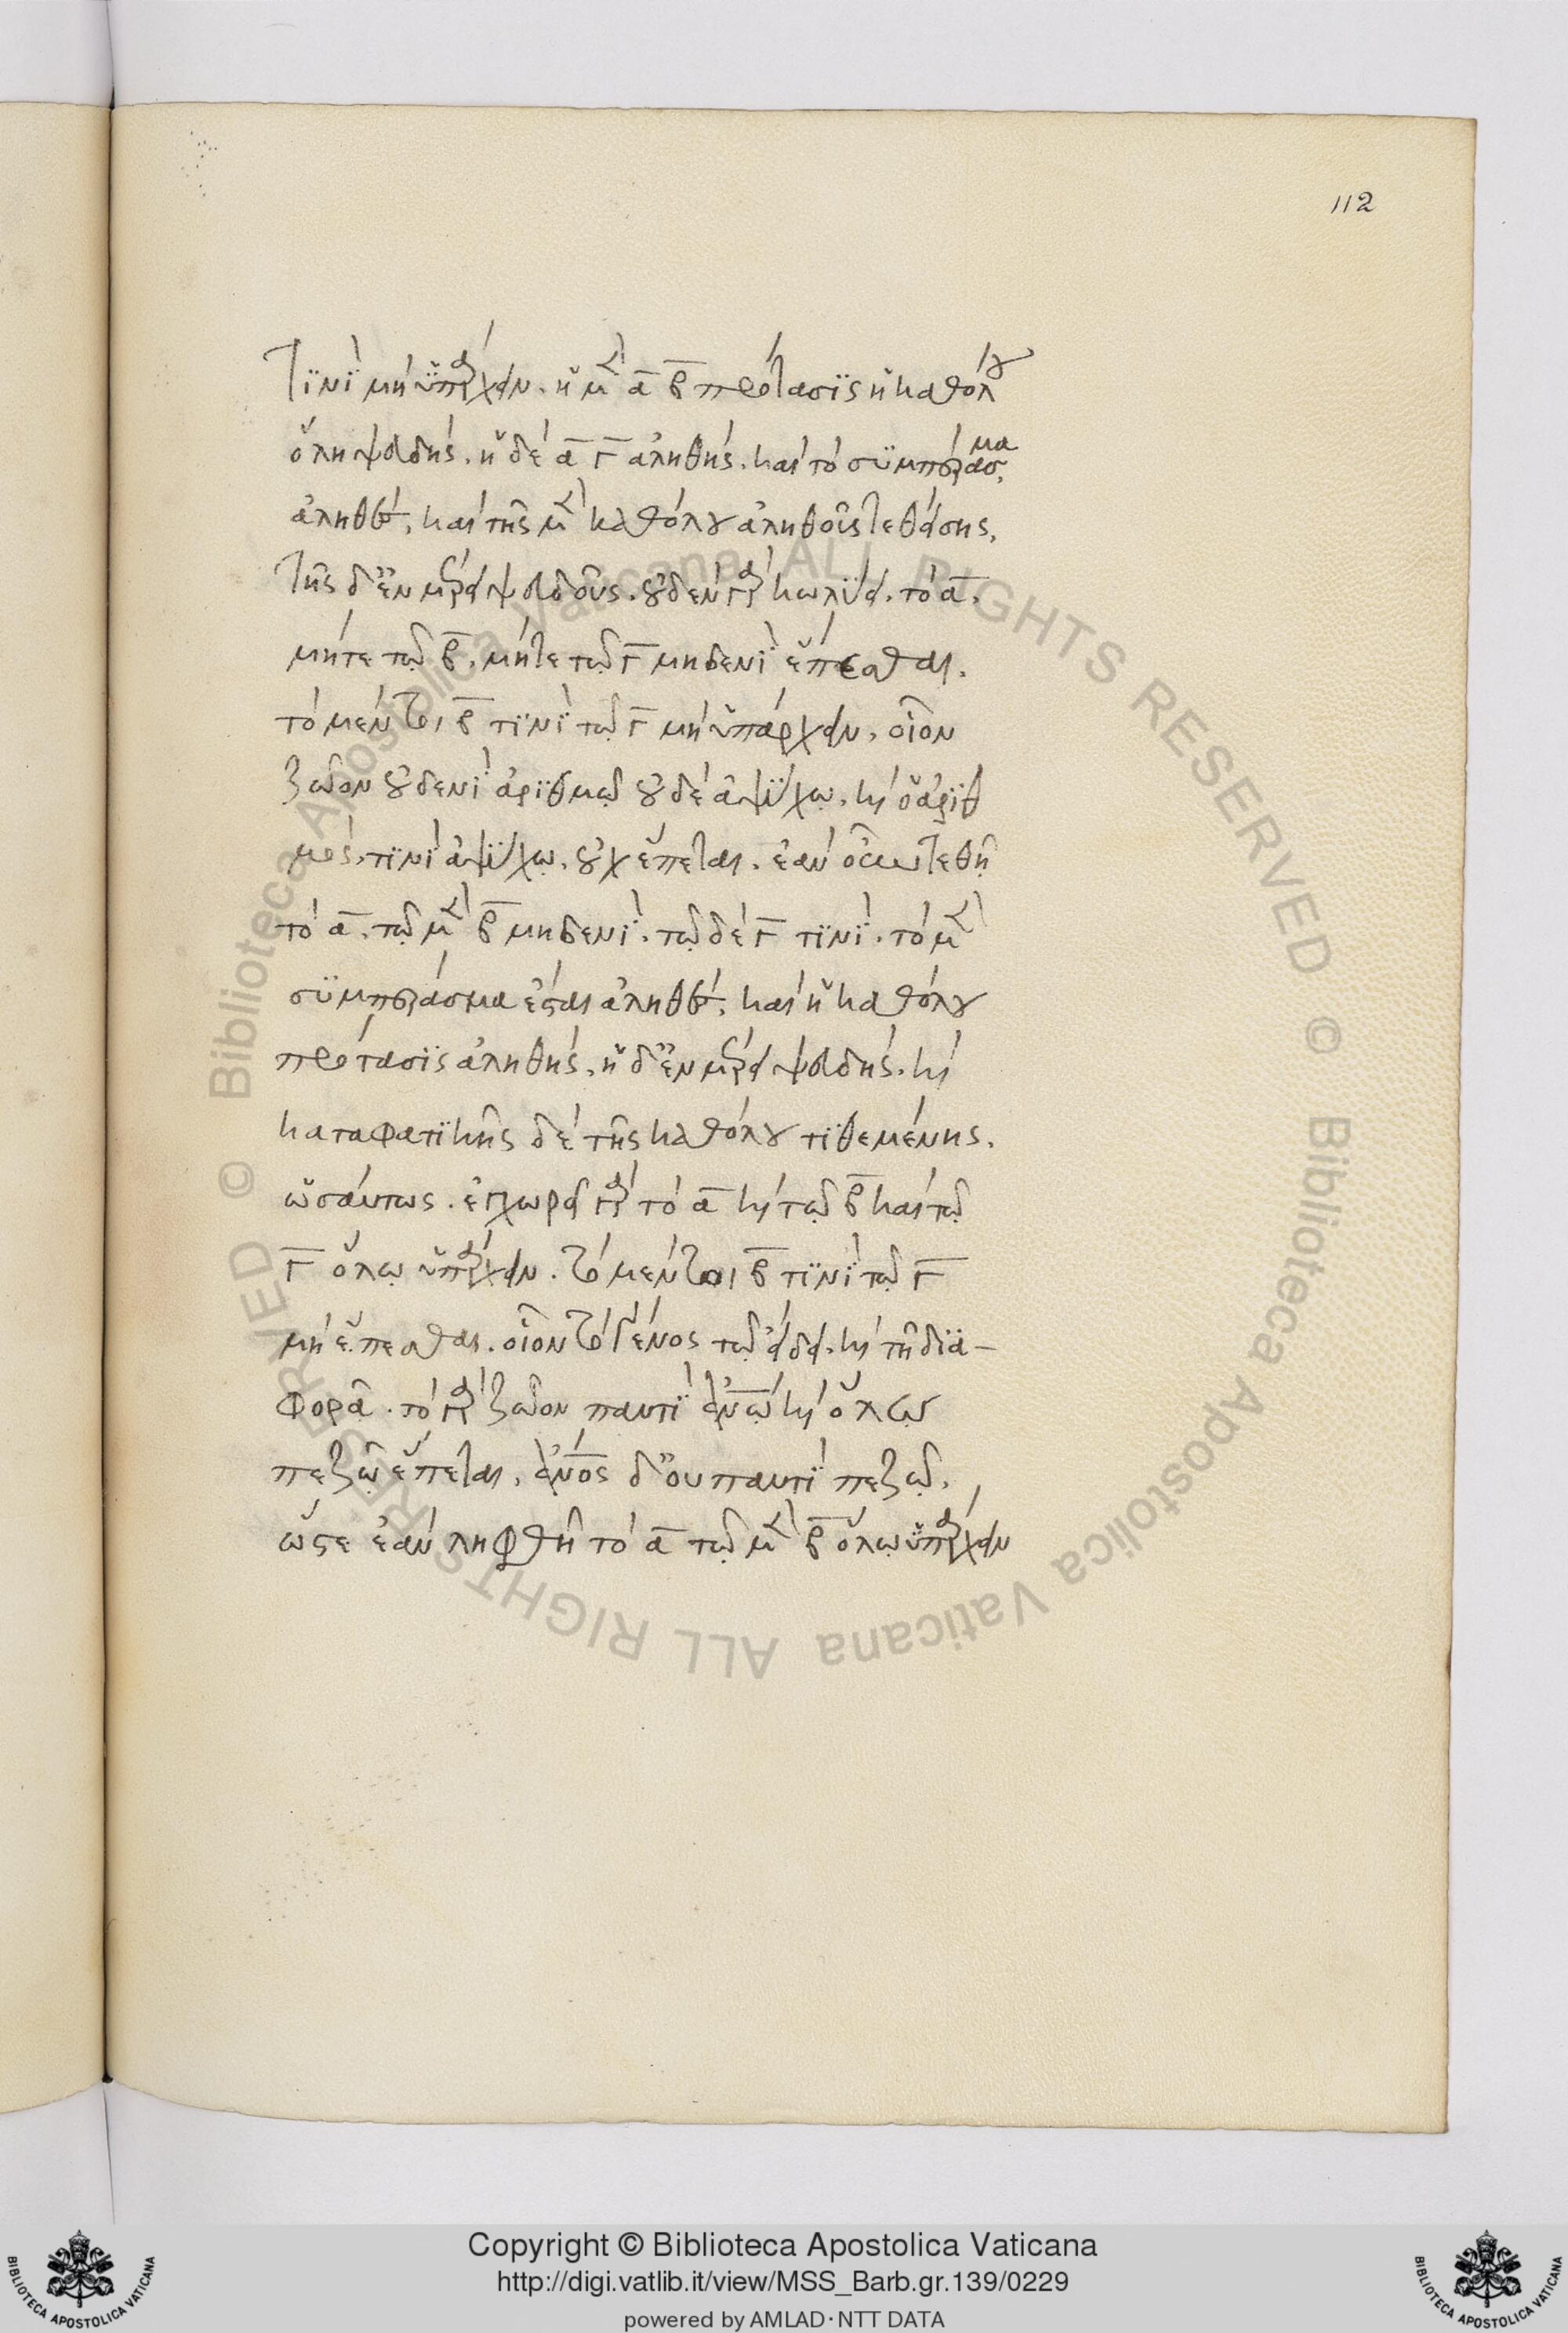 112
τϊνῒ μὴ ὑπάρχειν. ἡ μὲν ᾱ β̄ πρότασϊς ἡ καθόλου
ὅλη ψευδής. ἡ δὲ ᾱ γ̄ ἀληθής. καὶ τὸ συμπέρασμα
ἀληθές, καὶ τῆς μὲν καθόλου ἀληθοῦς τεθείσης,
τῆς δ' ἐν μέρει ψευδοῦς. οὐδὲν γὰρ κωλύει. τὸ ᾱ.
μήτε τῶ β̄. μήτε τῶ γ̄ μηδενῒ ἕπεσθαι.
τὸ μέντοι β̄ τϊνῒ τῶ γ̄ μὴ ὑπάρχειν, οἷον
ζῶον οὐδενῒ ἀρϊθμῷ οὐδὲ ἀψύχῳ. καὶ ὁ ἀρϊθ
μὸς, τϊνῒ ἀψύχῳ. οὐχ ἕπεται. ἐὰν οὖν τεθῇ
τὸ ᾱ. τῷ μὲν β̄ μηδενῒ. τῷ δὲ γ̄ τϊνῒ. τὸ μὲν
συμπέρασμα ἔσται ἀληθές, καὶ ἡ καθόλου
πρότασϊς ἀληθής, ἡ δ' ἐν μέρει ψευδής. καὶ
καταφατϊκῆς δὲ τῆς καθόλου τϊθεμένης.
ὡσαύτως. ἐγχωρεῖ γὰρ τὸ ᾱ καὶ τῷ β̄ καὶ τῷ
γ̄ ὅλῳ ὑπάρχειν. τὸ μέντοι β̄ τϊνῒ τῷ γ̄
μὴ ἕπεσθαι. οἷον τὸ γένος τῷ εἴδει. καὶ τῇ δϊα-
φορᾷ. τὸ γὰρ ζῶον παντῒ ἀν̅ω̅ καὶ ὅλῳ
πεζῷ ἕπεται, ἄν̅ο̅ς δ' οὐ παντῒ πεζῷ.
ὥστε ἐὰν ληφθῇ τὸ ᾱ τῷ μὲν β̄ ὅλῳ ὑπάρχειν
Copyright © Biblioteca Apostolica Vaticana
http://digi.vatlib.it/view/MSS_Barb.gr.139/0229
powered by AMLAD·NTT DATA
BIBLIOTECA APOSTOLICA VATICANA
BIBLIOTECA APOSTOLICA VATICANA
© Biblioteca Apostolica Vaticana ALL RIGHTS RESERVED © Biblioteca Apostolica Vaticana ALL RIGHTS RESERVED